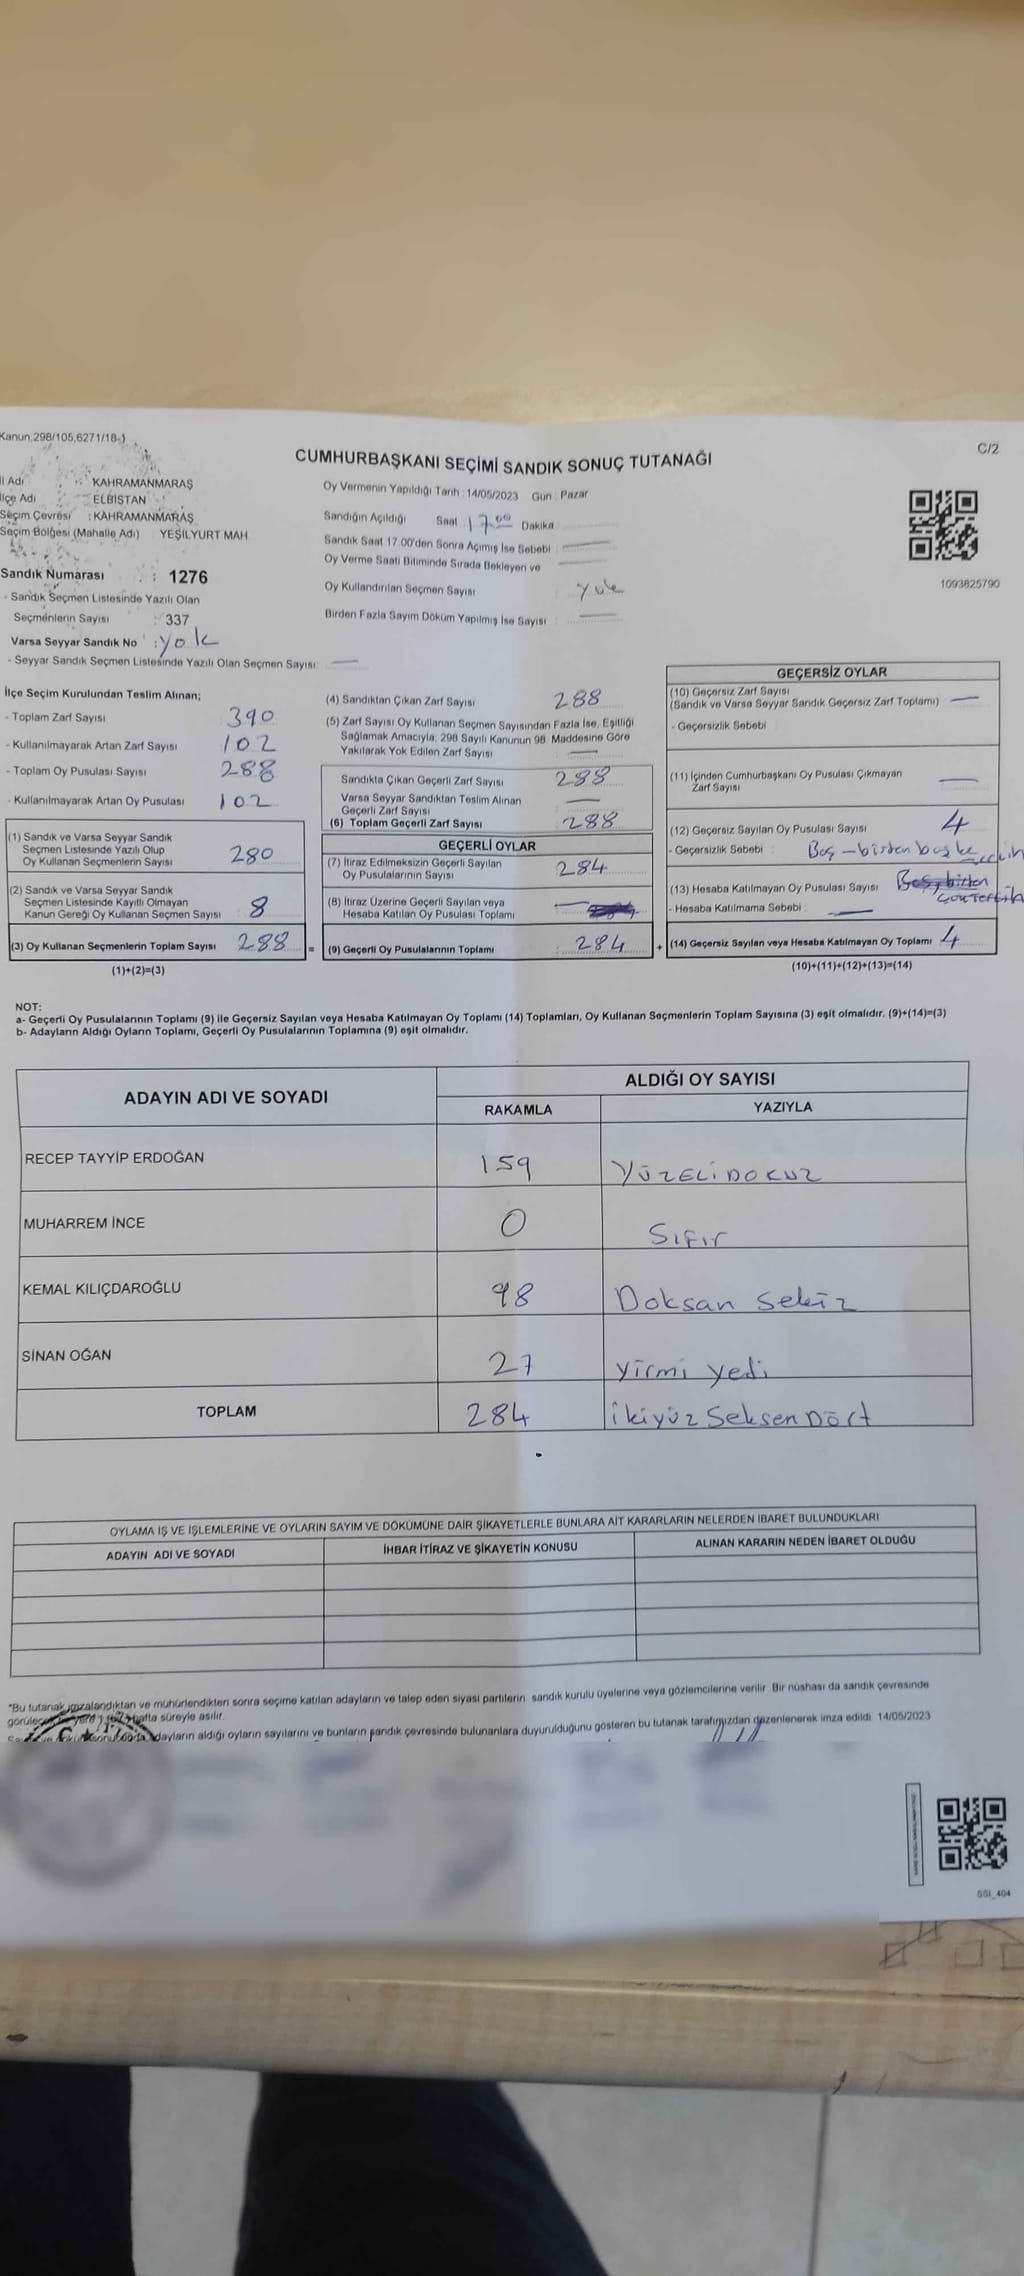 Kanun,298/105,6271/18-1
C/2
CUMHURBAŞKANI SEÇİMİ SANDIK SONUÇ TUTANAĞI
İl Adı : KAHRAMANMARAŞ
İlçe Adı : ELBİSTAN
Seçim Çevresi : KAHRAMANMARAŞ
Seçim Bölgesi (Mahalle Adı) : YEŞİLYURT MAH.
Sandık Numarası : 1276
- Sandık Seçmen Listesinde Yazılı Olan
Seçmenlerin Sayısı : 337
Varsa Seyyar Sandık No : yok
- Seyyar Sandık Seçmen Listesinde Yazılı Olan Seçmen Sayısı: —
Oy Vermenin Yapıldığı Tarih : 14/05/2023 Gün : Pazar
Sandığın Açıldığı Saat 17.00 Dakika
Sandık Saat 17.00'den Sonra Açımış İse Sebebi : —
Oy Verme Saati Bitiminde Sırada Bekleyen ve —
Oy Kullandırılan Seçmen Sayısı yok
Birden Fazla Sayım Döküm Yapılmış İse Sayısı : —
1093825790
İlçe Seçim Kurulundan Teslim Alınan;
- Toplam Zarf Sayısı 390
- Kullanılmayarak Artan Zarf Sayısı 102
- Toplam Oy Pusulası Sayısı 288
- Kullanılmayarak Artan Oy Pusulası 102
(1) Sandık ve Varsa Seyyar Sandık
Seçmen Listesinde Yazılı Olup
Oy Kullanan Seçmenlerin Sayısı 280
(2) Sandık ve Varsa Seyyar Sandık
Seçmen Listesinde Kayıtlı Olmayan
Kanun Gereği Oy Kullanan Seçmen Sayısı : 8
(3) Oy Kullanan Seçmenlerin Toplam Sayısı 288 =
(1)+(2)=(3)
(4) Sandıktan Çıkan Zarf Sayısı 288
(5) Zarf Sayısı Oy Kullanan Seçmen Sayısından Fazla İse, Eşitliği
Sağlamak Amacıyla; 298 Sayılı Kanunun 98. Maddesine Göre
Yakılarak Yok Edilen Zarf Sayısı —
Sandıkta Çıkan Geçerli Zarf Sayısı 288
Varsa Seyyar Sandıktan Teslim Alınan —
Geçerli Zarf Sayısı
(6) Toplam Geçerli Zarf Sayısı 288
GEÇERLİ OYLAR
(7) İtiraz Edilmeksizin Geçerli Sayılan 284
Oy Pusulalarının Sayısı
(8) İtiraz Üzerine Geçerli Sayılan veya —
Hesaba Katılan Oy Pusulası Toplamı
(9) Geçerli Oy Pusulalarının Toplamı : 284 +
GEÇERSİZ OYLAR
(10) Geçersiz Zarf Sayısı
(Sandık ve Varsa Seyyar Sandık Geçersiz Zarf Toplamı) —
- Geçersizlik Sebebi :
(11) İçinden Cumhurbaşkanı Oy Pusulası Çıkmayan —
Zarf Sayısı
(12) Geçersiz Sayılan Oy Pusulası Sayısı 4
- Geçersizlik Sebebi : Boş – birden başka
(13) Hesaba Katılmayan Oy Pusulası Sayısı Boş, birden
- Hesaba Katılmama Sebebi : —
(14) Geçersiz Sayılan veya Hesaba Katılmayan Oy Toplamı 4
(10)+(11)+(12)+(13)=(14)
NOT:
a- Geçerli Oy Pusulalarının Toplamı (9) ile Geçersiz Sayılan veya Hesaba Katılmayan Oy Toplamı (14) Toplamları, Oy Kullanan Seçmenlerin Toplam Sayısına (3) eşit olmalıdır. (9)+(14)=(3)
b- Adayların Aldığı Oyların Toplamı, Geçerli Oy Pusulalarının Toplamına (9) eşit olmalıdır.
ADAYIN ADI VE SOYADI ALDIĞI OY SAYISI
RAKAMLA YAZIYLA
RECEP TAYYİP ERDOĞAN 159 YÜZELİDOKUZ
MUHARREM İNCE 0 Sıfır
KEMAL KILIÇDAROĞLU 98 Doksan Sekiz
SİNAN OĞAN 27 yirmi yedi
TOPLAM 284 ikiyüz Seksen Dört
OYLAMA İŞ VE İŞLEMLERİNE VE OYLARIN SAYIM VE DÖKÜMÜNE DAİR ŞİKAYETLERLE BUNLARA AİT KARARLARIN NELERDEN İBARET BULUNDUKLARI
ADAYIN ADI VE SOYADI İHBAR İTİRAZ VE ŞİKAYETİN KONUSU ALINAN KARARIN NEDEN İBARET OLDUĞU
*Bu tutanak imzalandıktan ve mühürlendikten sonra seçime katılan adayların ve talep eden siyasi partilerin sandık kurulu üyelerine veya gözlemcilerine verilir. Bir nüshası da sandık çevresinde
hafta süreyle asılır.
adayların aldığı oyların sayılarını ve bunların sandık çevresinde bulunanlara duyurulduğunu gösteren bu tutanak tarafımızdan düzenlenerek imza edildi. 14/05/2023
SSI_404